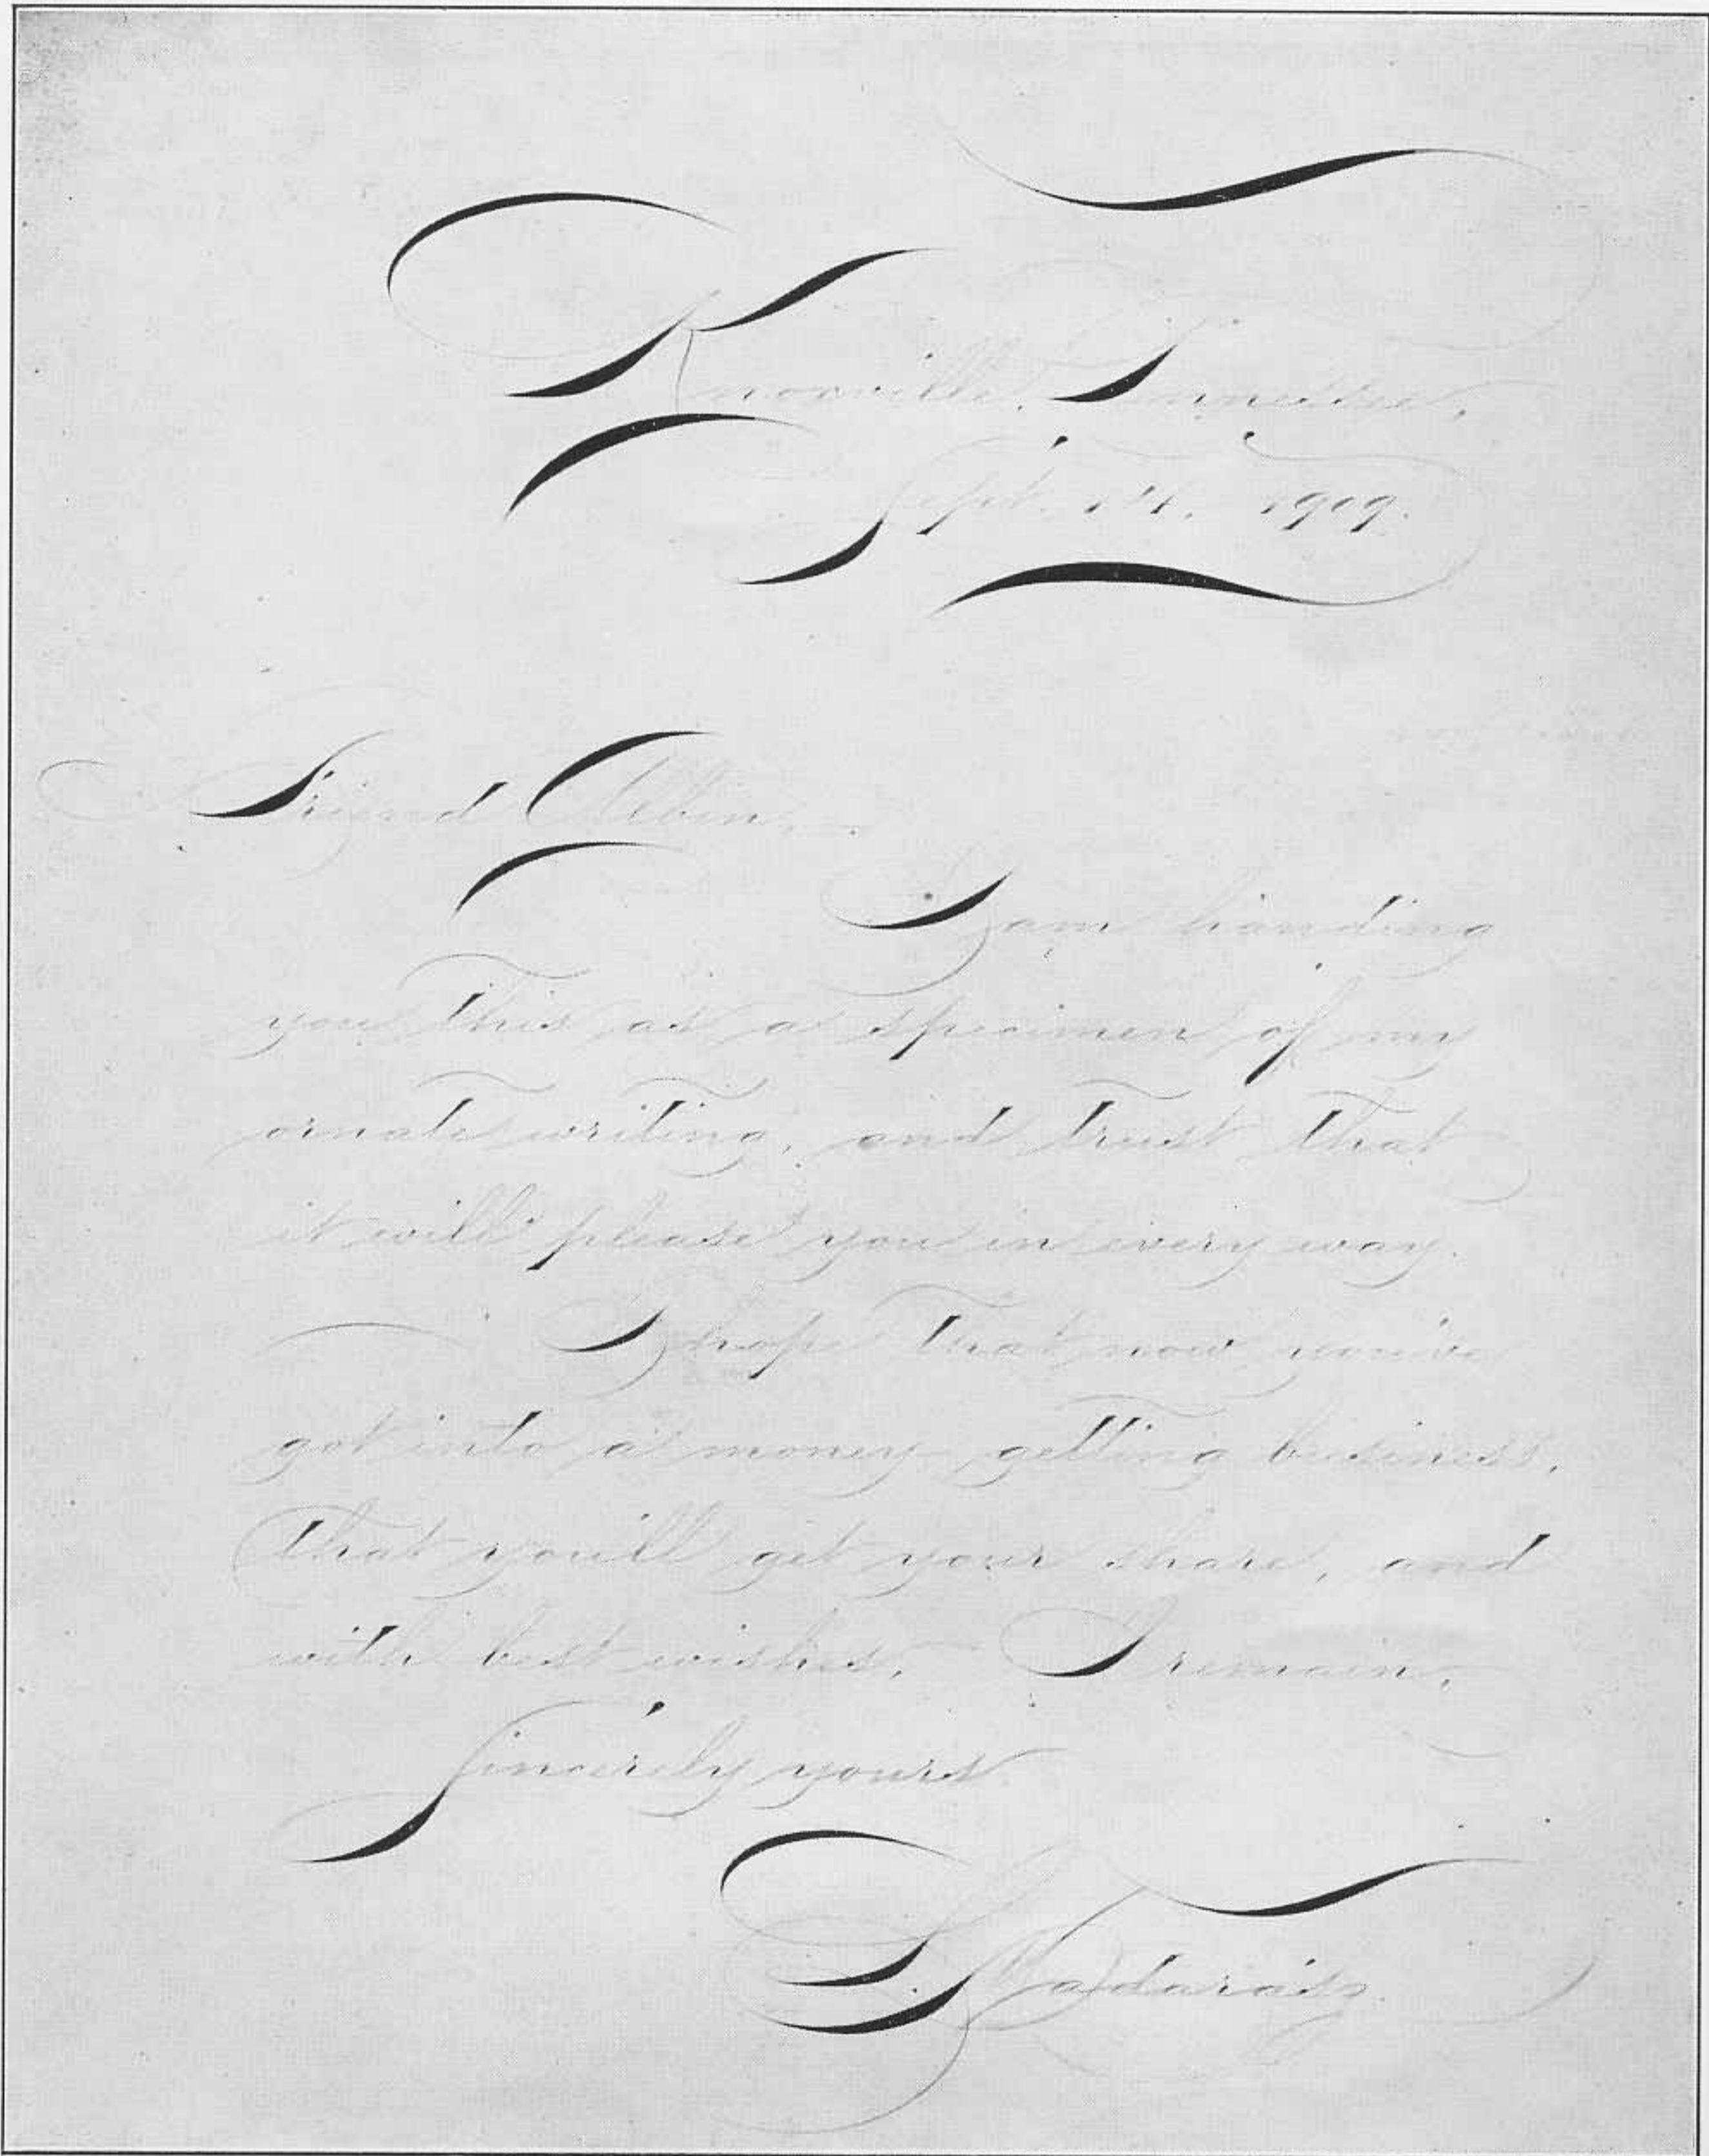 Knoxville, Tennessee,
Sept. 1909.
Friend
I am handing
you this as a specimen of my
ornate writing, and trust that
it will please you in every way.
I hope that now you've
got into a money-getting business,
that you'll get your share, and
with best wishes, I remain,
Sincerely yours
L. Madarasz.